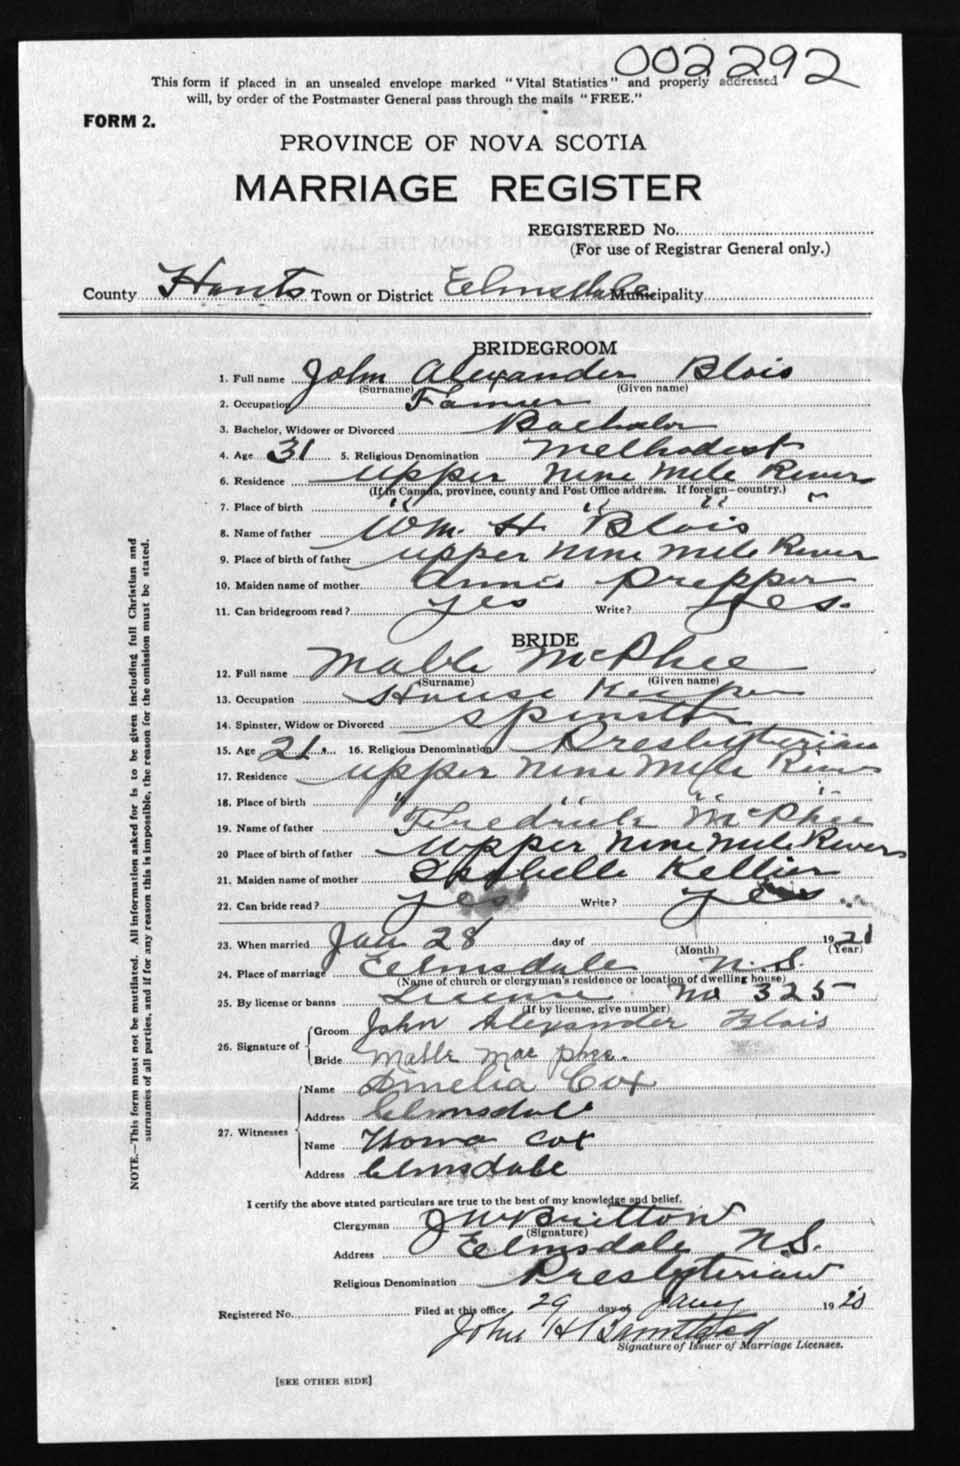 002292
This form if placed in an unsealed envelope marked "Vital Statistics" and properly addressed
will, by order of the Postmaster General pass through the mails "FREE."
FORM 2.
PROVINCE OF NOVA SCOTIA
MARRIAGE REGISTER
REGISTERED No.
(For use of Registrar General only.)
County Hants Town or District Eelmsdale Municipality
BRIDEGROOM
1. Full name John Alexander Blois
(Surname) (Given name)
2. Occupation Farmer
3. Bachelor, Widower or Divorced Bachelor
4. Age 31 5. Religious Denomination Methodist
6. Residence Upper Nine Mile River
(If in Canada, province, county and Post Office address. If foreign—country.)
7. Place of birth " " " "
8. Name of father Wm. H. Blois
9. Place of birth of father Upper Nine Mile River
10. Maiden name of mother Annie
11. Can bridegroom read? yes Write? yes.
BRIDE
12. Full name Mable McPhee
(Surname) (Given name)
13. Occupation House Keeper
14. Spinster, Widow or Divorced Spinster
15. Age 21 16. Religious Denomination Presbyterian
17. Residence Upper Nine Mile River
18. Place of birth " " " "
19. Name of father Fredrick McPhee
20 Place of birth of father Upper Nine Mile River
21. Maiden name of mother Isabelle
22. Can bride read? yes Write? yes
23. When married Jan 28 day of (Month) 1921 (Year)
24. Place of marriage Eelmsdale N.S.
(Name of church or clergyman's residence or location of dwelling house)
25. By license or banns License No 325
(If by license, give number)
26. Signature of
Groom John Alexander Blois
Bride Mable Mac phee.
27. Witnesses
Name Amelia Cox
Address Elmsdale
Name Cox
Address Elmsdale
I certify the above stated particulars are true to the best of my knowledge and belief.
Clergyman J W Britton
(Signature)
Address Eelmsdale N.S.
Religious Denomination Presbyterian
Registered No. Filed at this office 29 day of Jany 19
John H
Signature of Issuer of Marriage Licenses.
[SEE OTHER SIDE]
NOTE.—This form must not be mutilated. All information asked for is to be given including full Christian and
surnames of all parties, and if for any reason this is impossible, the reason for the omission must be stated.